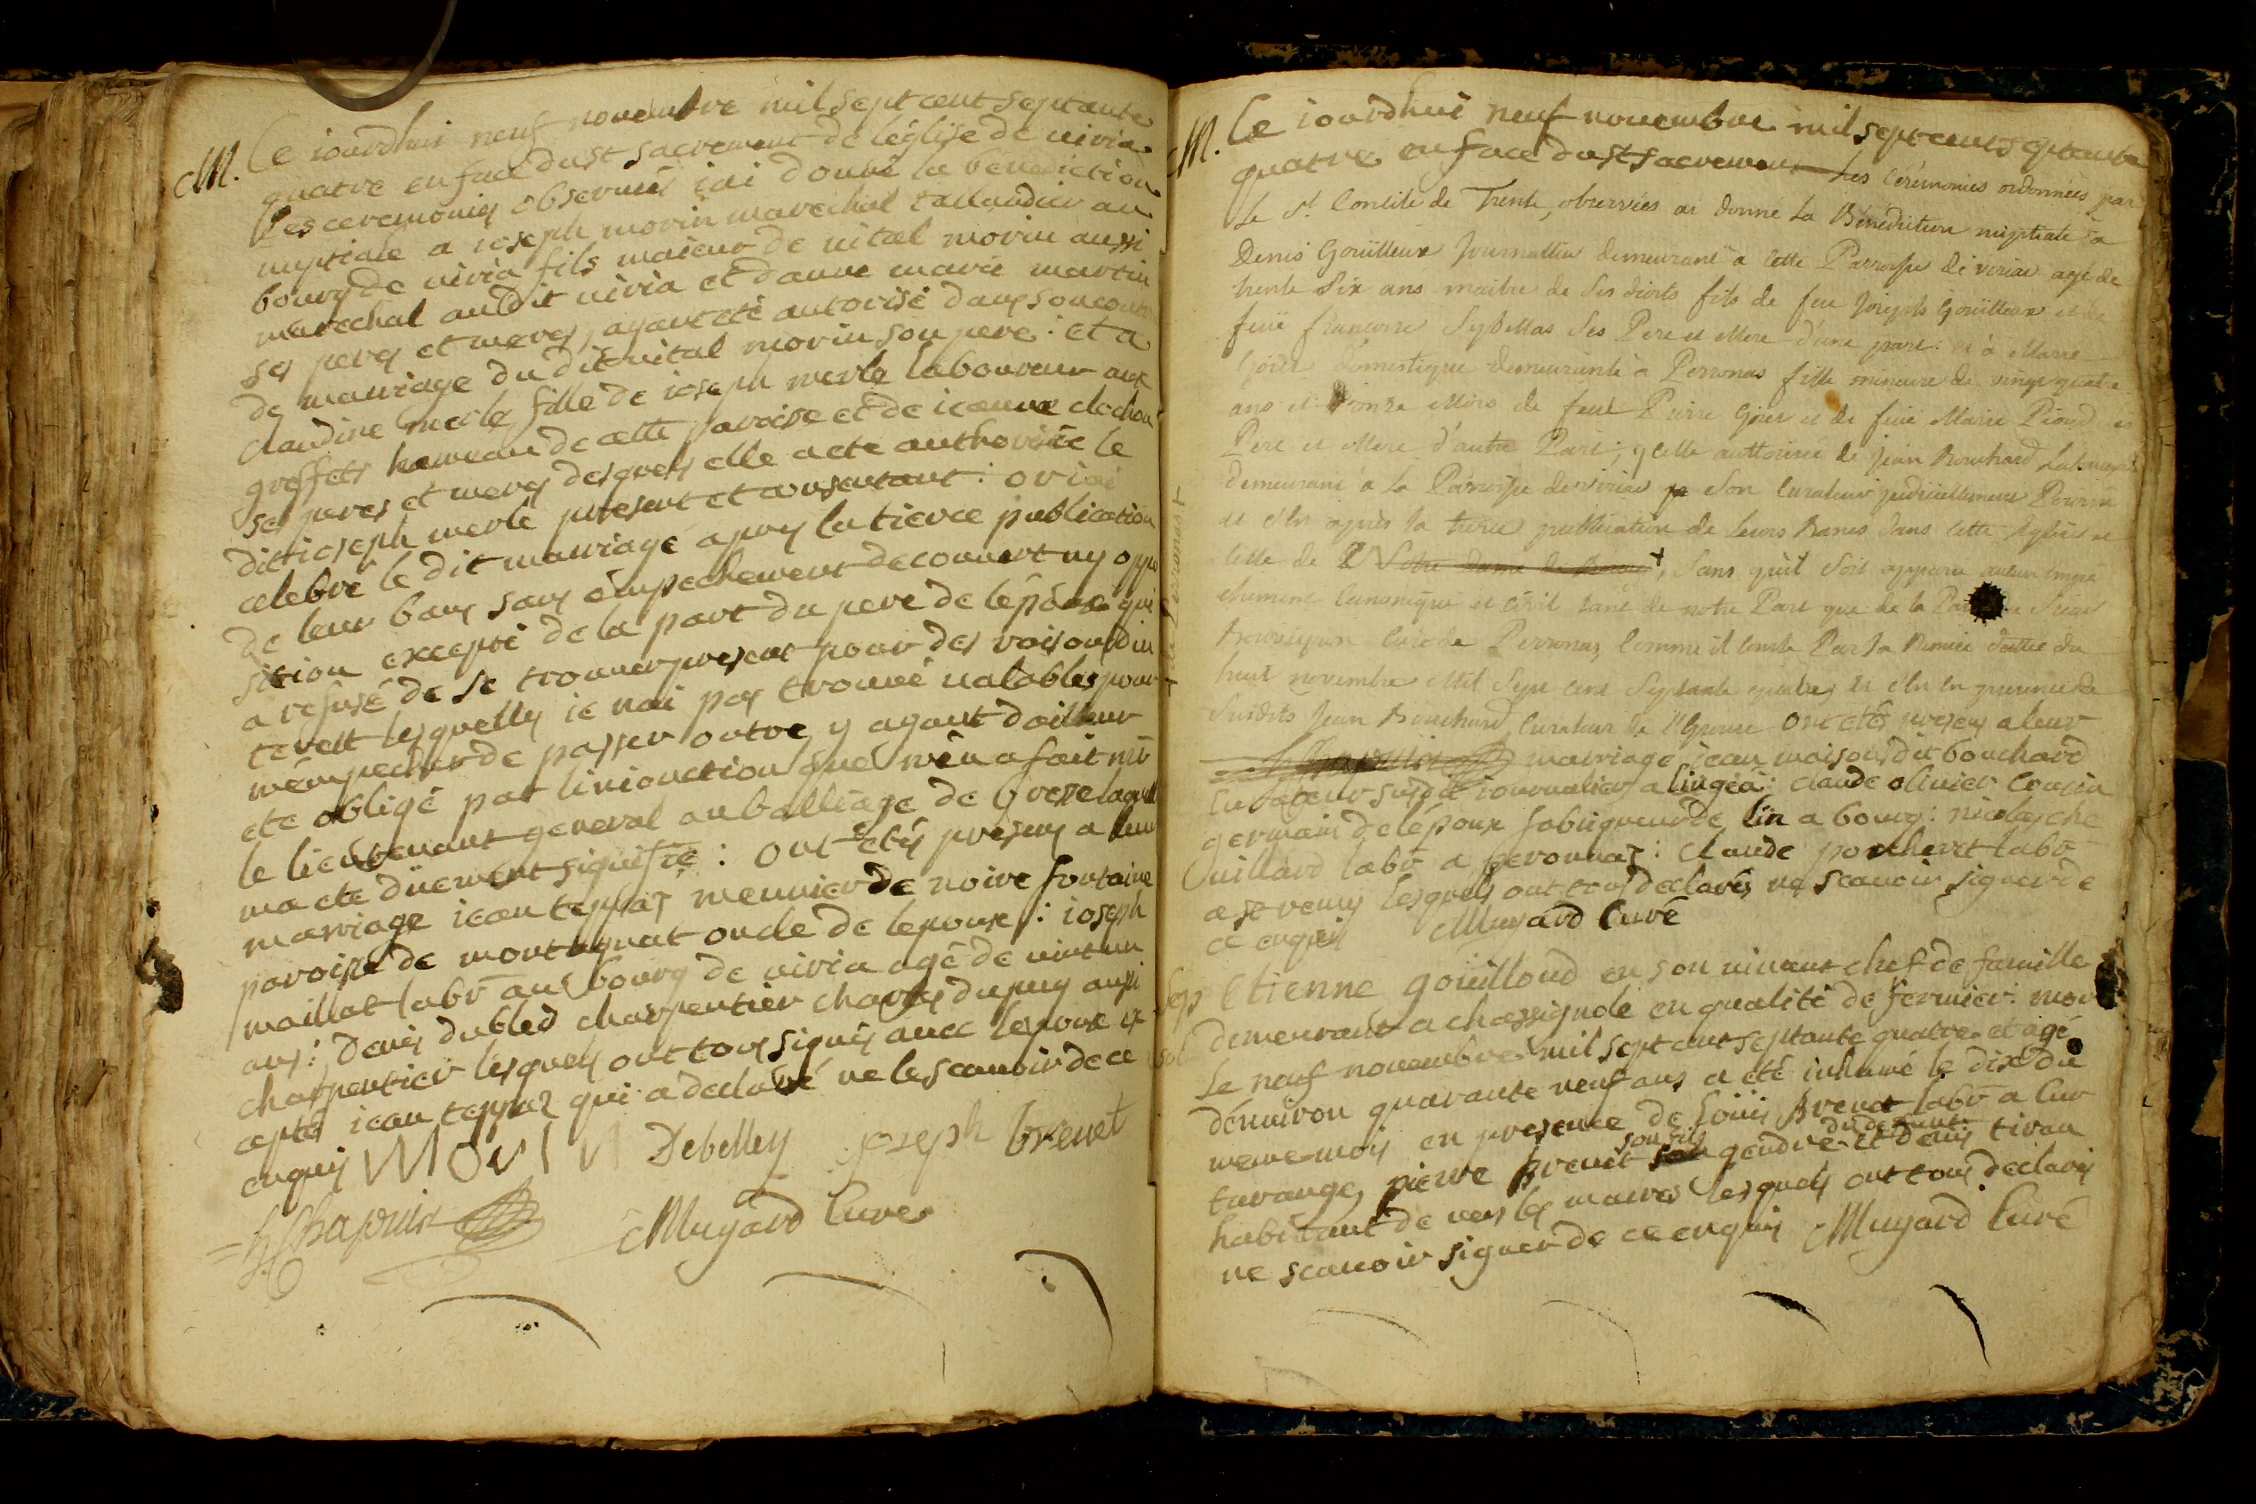 M. Ce iourdhui neuf novembre mil sept cent septante
quatre en face du st sacrement de léglise de uiria
les ceremonies observeés iai donné la bénédiction
nuptiale a ioseph morin marechal taillandier au
bourg de uiria fils maieur de uital morin aussi
marechal audit uiria et danne marie martin
ses peres et meres, ayant été autorisé dans son contr
de mariage du dit uital morin son pere : et a
claudine merle fille de ioseph merle laboureur aux
greffets hameau de cette paroise et de ieanne clochon
ses peres et meres desquels elle a eté authorisée le
dit ioseph merle présent et consentant : or iai
celebré le dit mariage apres la tierce publication
de leur bans sans émpechement decouvert ny oppo
sition excepté de la part du pere de lépóux qui
a refusé de se trouver present pour des raisons din
terest lesquelles ie nai pas trouvé ualables pour
mémpecher de passer outre y ayant dailleur
eté obligé par linionction que mèn a fait mr
le lieutenant general au balliage de bresse laquelle
ma eté düement signifiée : ont etés présens a leur
mariage iean teppaz meunier de noire fontaine
paroisse de montagnat oncle de lepoux : ioseph
maillat labr au bourg de uiria agé de uint un
ans : denis dubled charpentier charles dupuy aussi
charpentier lesquels ont tous signés avec lepoux ex
cepté iean teppaz qui a declaré ne le scauoir de ce
enquis Morin Debelley joseph brevet
h Chapuix Mugard Curé
M. Ce iourdhui neuf novembre mil sept cent septante
quatre en face du st sacrement Les Cérémonies ordonnées par
Le St. Concile de Trente, observées ai donné La Bénédiction nuptiale à
Denis Goüilleux Journallier demeurant à cette Parroisse de viriat agé de
trente Six ans maitre de Ses droits fils de feu Joseph Goüilleux et de
feüe françoise Ses Pere et Mere d'une part : et à Marie
Goier domestique demeurante à Perronas fille mineure de vingt quatre
ans et onze Mois de feul Pierre Goier et de feüe Marie Pioud ses
Pere et Mere d'autre Part ; ycelle authorisée de Jean Bouchard Laboureur
demeurant a La Parroisse de viriat Son Curateur judiciellement Pourvu
et c'En après la tierce publication de Leurs Bancs dans Cette Eglise et
Celle de Notre dame de Bourg +, Sans qu'il Soit apparu aucun impé
chement Canonique et Civil tant de notre Part que de la Part de Sieur
Curé de Perronas, Comme il Conste Par Sa Remise dattée du
huit novembre Mil Sept Cent Septante quatre, et c'En en presence de
Susdits Jean Bouchard Curateur de l'Epouse ont étés presens a leur
mariage iean maison dit bouchard
Curateur susdit iournalier a lingéa : claude oliuier Cousin
germain de lépoux fabriqueur de lin a bourg : nicolas che
uillard labr a peronnaz : Claude porcheret labr
a st remy lesquels ont tous declarés ne scauoir signer de
ce enquis Mugard Curé
+ de Peronas +
Sep Etienne goüilloud en son uiuant chef de famille
demeurant a chassignole en qualité de fermier : mort
Le neuf novembre mil sept cent septante quatre et agé
dénuiron quarante neuf ans a été inhumé le dixe du
meme mois en presence de loüis brevet labr a Cur
tarange, pierre brevet son fils gendre du defunt et denis tiran
habitant de uers les mares lesquels ont tous declarés
ne scauoir signer de ce enquis Mugard Curé